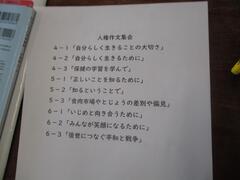 人権作文集会
4－1「自分らしく生きることの大切さ」
4－2「自分らしく生きるために」
4－3「保健の学習を学んで」
5－1「正しいことを知るために」
5－2「知るということで」
5－3「食肉市場やとじょうの差別や偏見」
6－1「いじめと向き合うために」
6－2「みんなが笑顔になるために」
6－3「後世につなぐ平和と戦争」